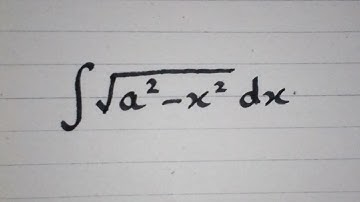 ∫√(a²-x²) dx